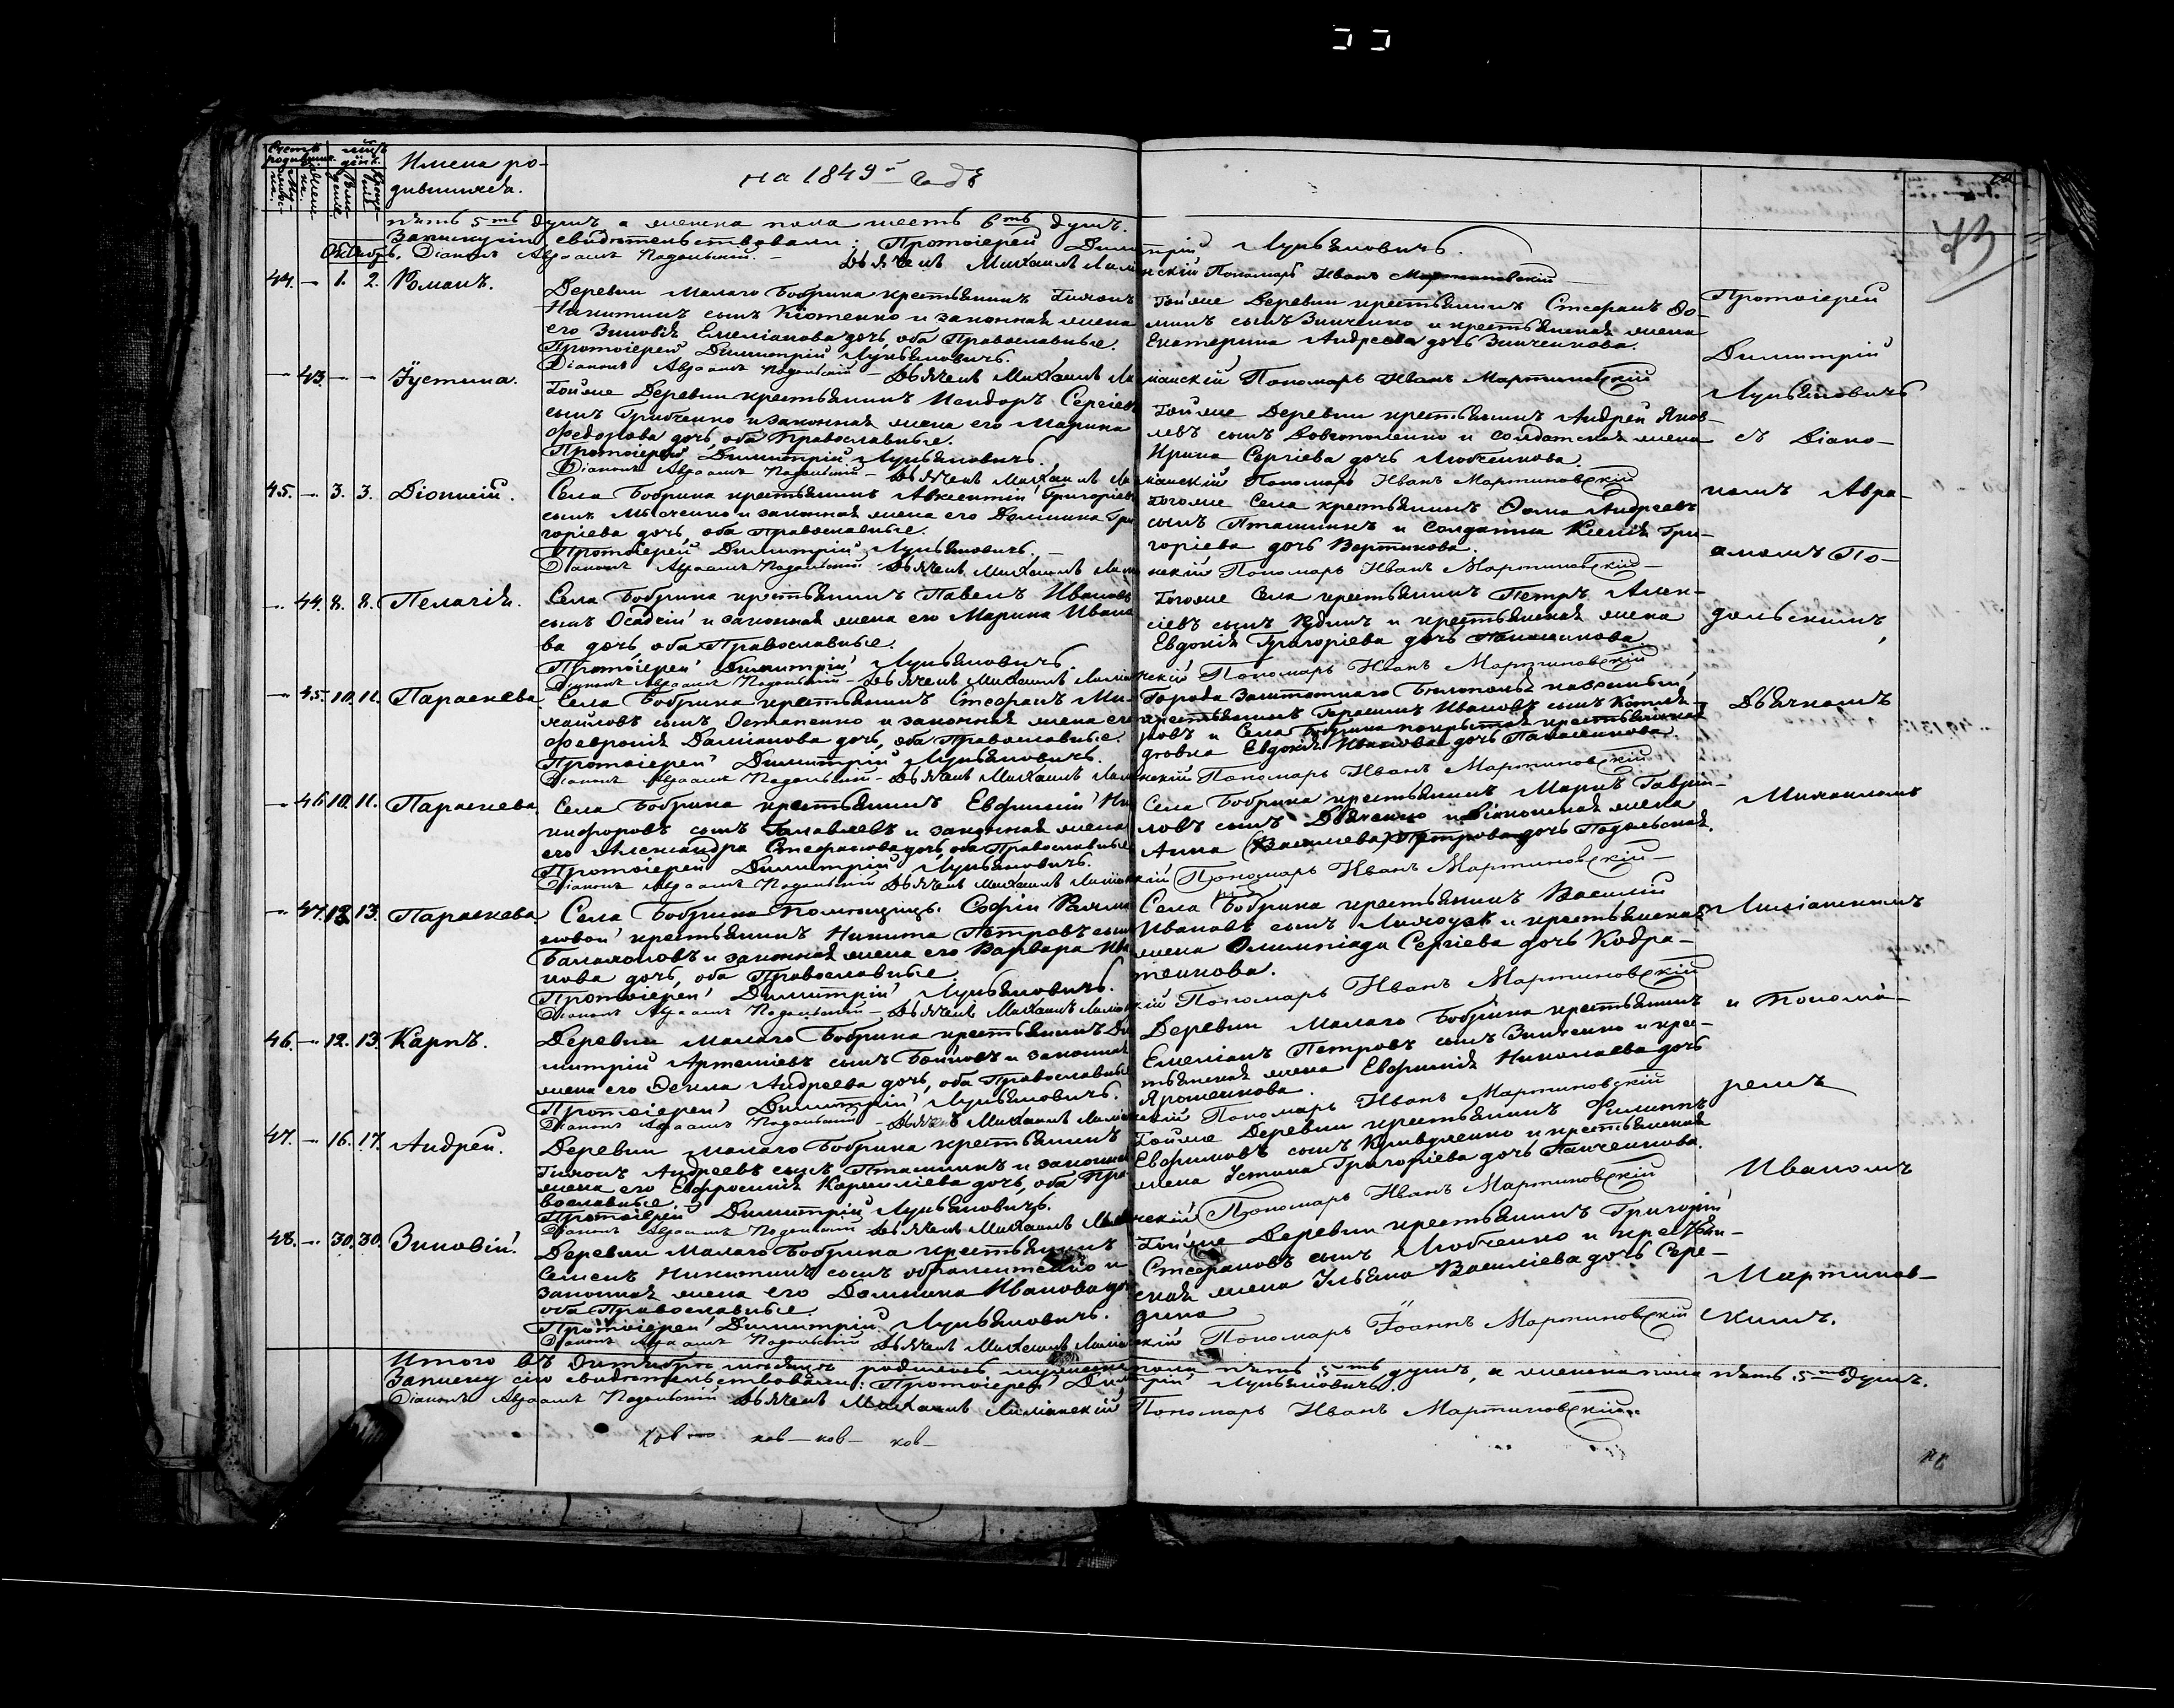 Имена ро-
дившихся.
на 1849й годъ
пять 5ть душъ а женска пола шесть 6ть душъ.
Записку сію свидѣтельствовали: Протоіерей Димитрій Лукьяновичъ.
Октябрь. Діаконъ Авраамъ Подольскій. – Дьячекъ Михаилъ Пономарь Иванъ Мартиновскій
44. – 1. 2. Романъ.
Деревни Малаго Бобрика крестьянинъ Тихонъ
Никитинъ сынъ и законная жена
его Зиновія Емеліанова дочь, оба Православные.
Протоіерей Димитрій Лукьяновичъ.
Діаконъ Авраамъ Подольскій – Дьячекъ Михаилъ Пономарь Иванъ Мартиновскій
Тойже Деревни крестьянинъ Стефанъ Ѳо-
минъ сынъ Зинченко и крестьянская жена
Екатерина Андреева дочь Зинченкова.
Протоіерей
Димитрій
Лукьяновичъ
съ Діако-
номъ Авра-
амомъ По-
дольскимъ,
Дьячкомъ
Михаиломъ
и Понома-
ремъ
Иваномъ
Мартинов-
скимъ.
– 43. – – Іустина.
Тойже Деревни крестьянинъ Исидоръ Сергіевъ
сынъ Грибченко и законная жена его Марина
Федорова дочь, оба Православные.
Протоіерей Димитрій Лукьяновичъ.
Діаконъ Авраамъ Подольскій – Дьячекъ Михаилъ Пономарь Иванъ Мартиновскій
Тойже Деревни крестьянинъ Андрей Яков-
левъ сынъ и солдатская жена
Ирина Сергіева дочь Любченкова.
45. – 3. 3. Діонисій.
Села Бобрика крестьянинъ Авксентій Григорьевъ
сынъ и законная жена его Домника Гри-
горіева дочь, оба Православные.
Протоіерей Димитрій Лукьяновичъ.
Діаконъ Авраамъ Подольскій Дьячекъ Михаилъ Пономарь Иванъ Мартиновскій
Тогоже Села крестьянинъ Ѳома Андреевъ
сынъ Пташникъ и солдатка Ксенія Гри-
горіева дочь
– 44. 8. 8. Пелагія.
Села Бобрика крестьянинъ Павелъ Ивановъ
сынъ Осадчій и законная жена его Марина Ивано-
ва дочь, оба Православные.
Протоіерей Димитрій Лукьяновичъ
Діаконъ Авраамъ Подольскій – Дьячекъ Михаилъ Пономарь Иванъ Мартиновскій
Тогоже Села крестьянинъ Петръ Алек-
сіевъ сынъ и крестьянская жена
Евдокія Григоріева дочь
– 45. 10. 11. Параскева
Села Бобрика крестьянинъ Стефанъ Ми-
хайловъ сынъ Остапенко и законная жена его
Февронія Даміанова дочь, оба Православные.
Протоіерей Димитрій Лукьяновичъ.
Діаконъ Авраамъ Подольскій – Дьячекъ Михаилъ Пономарь Иванъ Мартиновскій
Города Заштатнаго Бѣлополья казенный
крестьянинъ Герасимъ Ивановъ сынъ
и Села Бобрика
Евдокія Иванова дочь
– 46. 10. 11. Параскева.
Села Бобрика крестьянинъ Евфимій Ни-
кифоровъ сынъ и законная жена
его Александра Стефанова дочь, оба Православные
Протоіерей Димитрій Лукьяновичъ.
Діаконъ Авраамъ Подольскій Дьячекъ Михаилъ Пономарь Иванъ Мартиновскій
Села Бобрика крестьянинъ Маркъ Гаврии-
ловъ сынъ Дьяченко и Діаконская жена
Анна (Василіева) Петрова дочь Подольская.
– 47. 12. 13. Параскева
Села Бобрика Помѣщицы Софіи
крестьянинъ Никита Петровъ сынъ
и законная жена его Варвара Ива-
нова дочь, оба Православные.
Протоіерей Димитрій Лукьяновичъ.
Діаконъ Авраамъ Подольскій – Дьячекъ Михаилъ Пономарь Иванъ Мартиновскій
Села Бобрика крестьянинъ Василій
Ивановъ сынъ и крестьянская
жена Олимпіада Сергіева дочь Кодра-
тенкова.
46. – 12. 13. Карпъ.
Деревни Малаго Бобрика крестьянинъ Ди-
митрій Артеміевъ сынъ Бойковъ и законная
жена его Ѳекла Андреева дочь, оба Православные
Протоіерей Димитрій Лукьяновичъ.
Діаконъ Авраамъ Подольскій – Дьячекъ Михаилъ Пономарь Иванъ Мартиновскій
Деревни Малаго Бобрика крестьянинъ
Емеліанъ Петровъ сынъ Зинченко и крес-
тьянская жена Евфимія Николаева дочь
Ярошенкова.
47. – 16. 17. Андрей.
Деревни Малаго Бобрика крестьянинъ
Тихонъ Андреевъ сынъ Пташникъ и законная
жена его Евфросинія Корнилієва дочь, оба Пра-
вославные.
Протоіерей Димитрій Лукьяновичъ.
Діаконъ Авраамъ Подольскій Дьячекъ Михаилъ Пономарь Иванъ Мартиновскій
Тойже Деревни крестьянинъ Филиппъ
Евфимовъ сынъ и крестьянская
жена Устина Григоріева дочь Панченкова.
48. – 30. 30. Зиновій.
Деревни Малаго Бобрика крестьянинъ
Семенъ Никитинъ сынъ и
законная жена его Домника Иванова дочь
оба Православные.
Протоіерей Димитрій Лукьяновичъ.
Діаконъ Авраамъ Подольскій Дьячекъ Михаилъ Пономарь Іоаннъ Мартиновскій
Тойже Деревни крестьянинъ Григорій
Стефановъ сынъ Любченко и крестьян-
ская жена Ульяна Василіева дочь Сере-
дина
Итого въ Октябрѣ мѣсяцѣ родилось мужеска пола пять 5ть душъ, а женска пола пять 5ть душъ.
Записку сію свидѣтельствовали: Протоіерей Димитрій Лукьяновичъ.
Діаконъ Авраамъ Подольскій Дьячекъ Михаилъ Пономарь Иванъ Мартиновскій